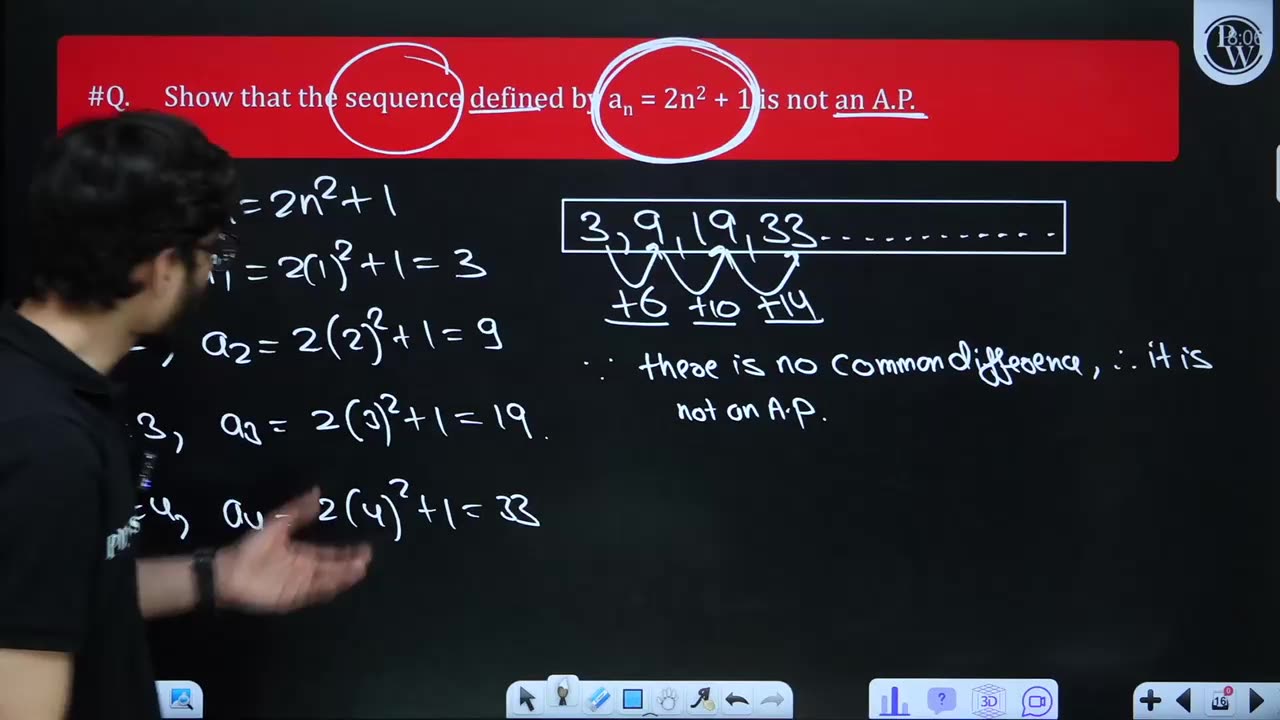 #Q. Show that the sequence defined by aₙ = 2n² + 1 is not an A.P.
= 2n² + 1
= 2(1)² + 1 = 3
, a₂ = 2(2)² + 1 = 9
3, a₃ = 2(3)² + 1 = 19.
=4, a₄ = 2(4)² + 1 = 33
3, 9, 19, 33.............
+6 +10 +14
∵ there is no common difference, ∴ it is
not an A.P.
PW
8:06
3D
16
0